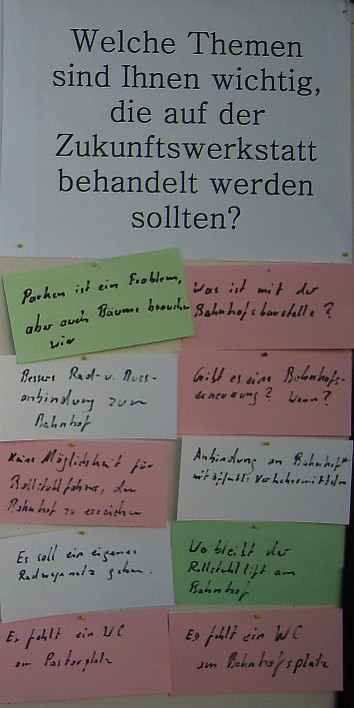 Welche Themen
sind Ihnen wichtig,
die auf der
Zukunftswerkstatt
behandelt werden
sollten?
Parken ist ein Problem,
aber auch Bäume brauchen
wir
Was ist mit der
Bahnhofsbaustelle?
Bessere Rad- u. Buss-
anbindung zum
Bahnhof
Gibt es eine Bahnhofs-
erneuerung? Wann?
Keine Möglichkeit für
Rollstuhlfahrer, den
Bahnhof zu erreichen
Anbindung an Bahnhof
mit öffentl. Verkehrsmitteln
Es soll ein eigenes
Radwegenetz geben.
Wo bleibt der
Rollstuhllift am
Bahnhof
Es fehlt ein WC
am Pastorplatz
Es fehlt ein WC
am Bahnhofsplatz